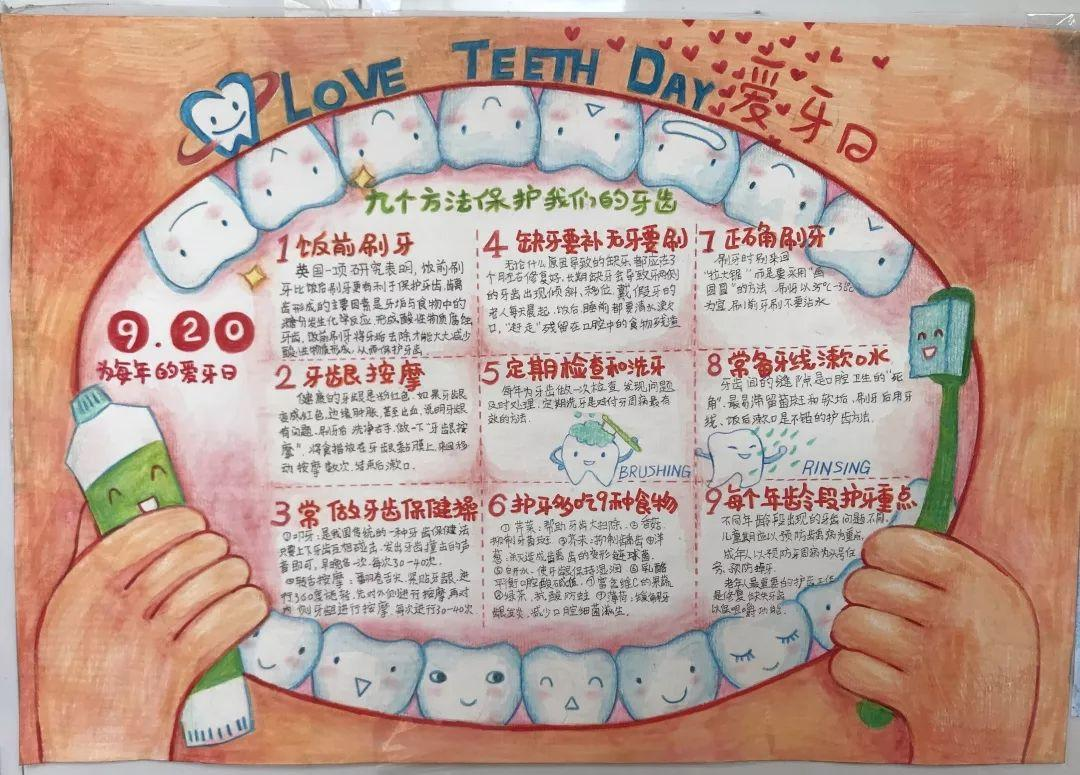 LOVE TEETH DAY 爱牙日
九个方法保护我们的牙齿
9.20
为每年的爱牙日
1 饭前刷牙
英国一项研究表明,饭前刷
牙比饭后刷牙更有利于保护牙齿,龋齿
形成的主要因素是牙垢与食物中的
糖分发生化学反应,形成酸性物质腐蚀
牙齿,饭前刷牙将牙垢去除才能大大减少
酸性物质形成,从而保护牙齿
2 牙龈按摩
健康的牙龈是粉红色,如果牙龈
变成红色,边缘肿胀,甚至出血,说明牙龈
有问题.刷牙后洗净右手,做一下"牙龈按
摩",将食指放在牙龈黏膜上,来回移
动按摩数次,结束后漱口.
3 常做牙齿保健操
①叩牙:是我国传统的一种牙齿保健法
只要上下牙齿互相碰击,发出牙齿撞击的声
音即可,早晚各一次.每次30-40次.
按摩,舌尖,紧贴牙龈,进
行360度运转,先对外侧进行按摩再对
内侧牙龈进行按摩.每次进行30-40次
4 缺牙要补无牙要刷
无论什么原因导致的缺牙,都应在3
个月左右修复好,长期缺牙会导致牙两侧
的牙齿出现倾斜,移位,戴假牙的
老人每天晨起、饭后、睡前都要清水漱
口,"赶走"残留在口腔中的食物残渣
5 定期检查和洗牙
每年为牙齿做一次检查,发现问题
及时处理,定期洗牙是对付牙周病最有
效的方法.
BRUSHING
6 护牙多吃9种食物
①芹菜:帮助牙齿大扫除.②香菇:
抑制牙菌斑 ③芥末:抑制龋齿 ④洋
葱:杀死造成龋齿的变形链球菌.
⑤白开水:使牙龈保持湿润 ⑥乳酪
平衡口腔酸碱值.⑦富含维C的果蔬
⑧绿茶:抗酸防蛀 ⑨薄荷:缓解牙
龈发炎,减少口腔细菌滋生.
7 正确角刷牙
刷牙时别来回
"拉大锯"而是要采用"画
圆圈"的方法.刷牙以35℃
为宜.刷前牙刷不要沾水
8 常备牙线漱口水
牙齿间的缝隙是口腔卫生的"死
角",最易滞留菌斑和软垢.刷牙后用牙
线、饭后漱口是不错的护齿方法.
RINSING
9 每个年龄段护牙重点
不同年龄段出现的牙齿问题不同,
儿童期应以预防龋病为重点,
成年人以预防牙周病为
务,预防掉牙.
老年人最重要的护牙工作
是修复缺失牙齿
以恢咀嚼功能.